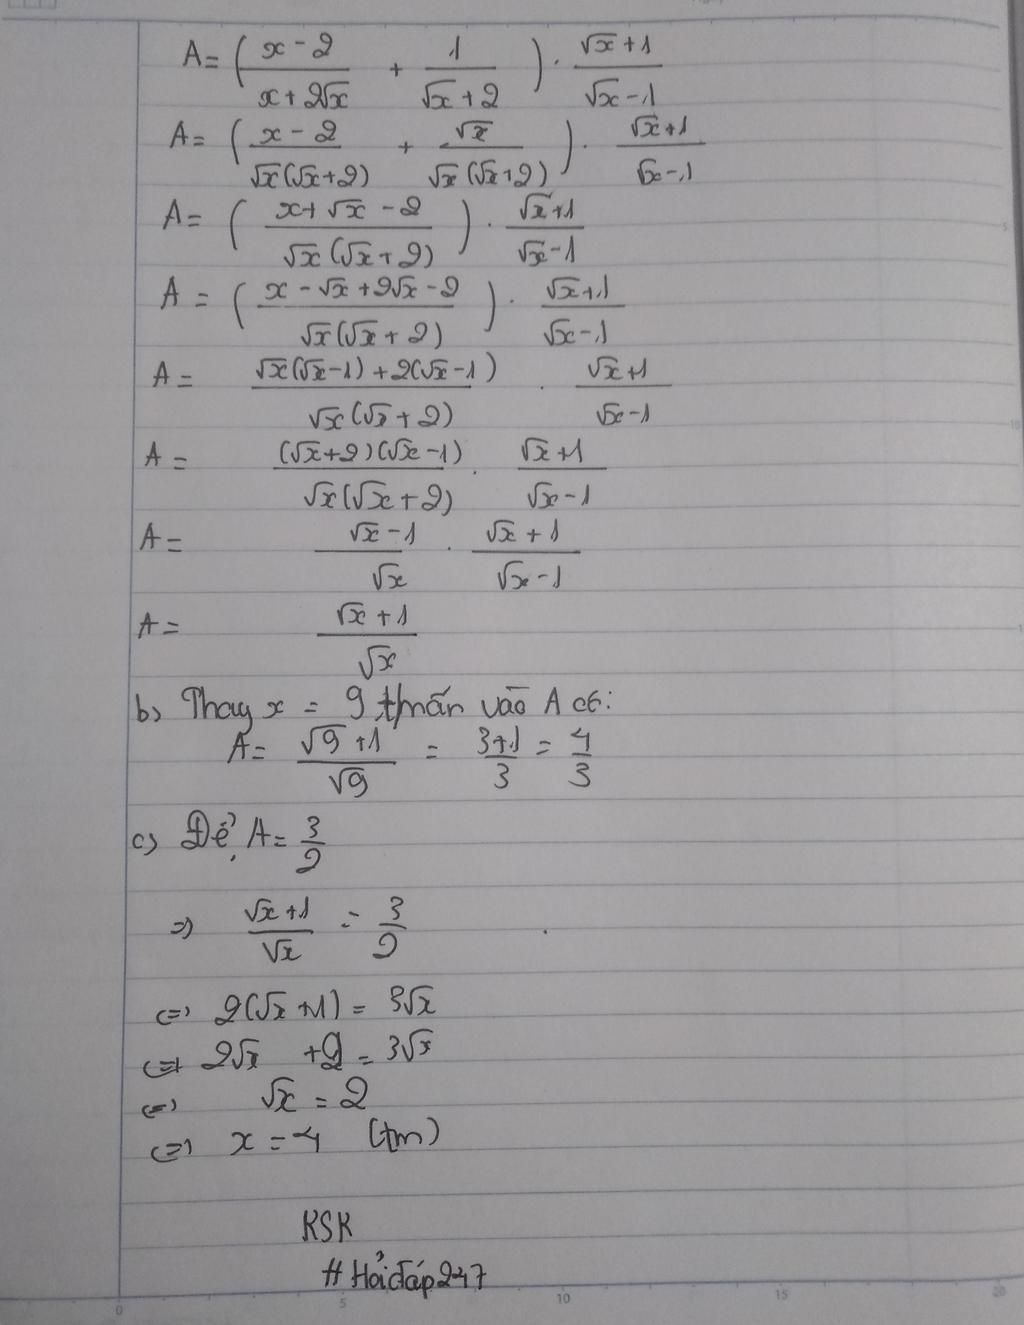 A = ( (x - 2)/(x + 2√x) + 1/(√x + 2) ) . (√x + 1)/(√x - 1)
A = ( (x - 2)/(√x(√x + 2)) + √x/(√x(√x + 2)) ) . (√x + 1)/(√x - 1)
A = ( (x + √x - 2)/(√x(√x + 2)) ) . (√x + 1)/(√x - 1)
A = ( (x - √x + 2√x - 2)/(√x(√x + 2)) ) . (√x + 1)/(√x - 1)
A = (√x(√x - 1) + 2(√x - 1))/(√x(√x + 2)) . (√x + 1)/(√x - 1)
A = ((√x + 2)(√x - 1))/(√x(√x + 2)) . (√x + 1)/(√x - 1)
A = (√x - 1)/√x . (√x + 1)/(√x - 1)
A = (√x + 1)/√x
b) Thay x = 9 t/mãn vào A có:
A = (√9 + 1)/√9 = (3+1)/3 = 4/3
c) Để A = 3/2
=> (√x + 1)/√x = 3/2
<=> 2(√x + 1) = 3√x
<=> 2√x + 2 = 3√x
<=> √x = 2
<=> x = 4 (tm)
KSK
#Hỏiđáp247
0 5 10 15 20